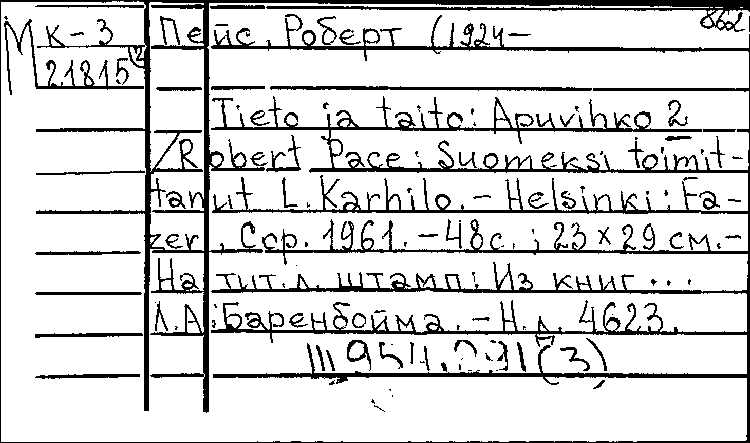 862
М К-3 Пейс, Роберт (1924-
21815(2
Tieto ja taito: Apuvihko 2
/Robert Pace; Suomeksi toimit-
tanut L. Karhilo. - Helsinki: Fa-
zer, Cop. 1961. - 48с.; 23 × 29 см. -
На тит. л. штамп: Из книг...
Л.А. Баренбойма. - Н.д. 4623.
(3)